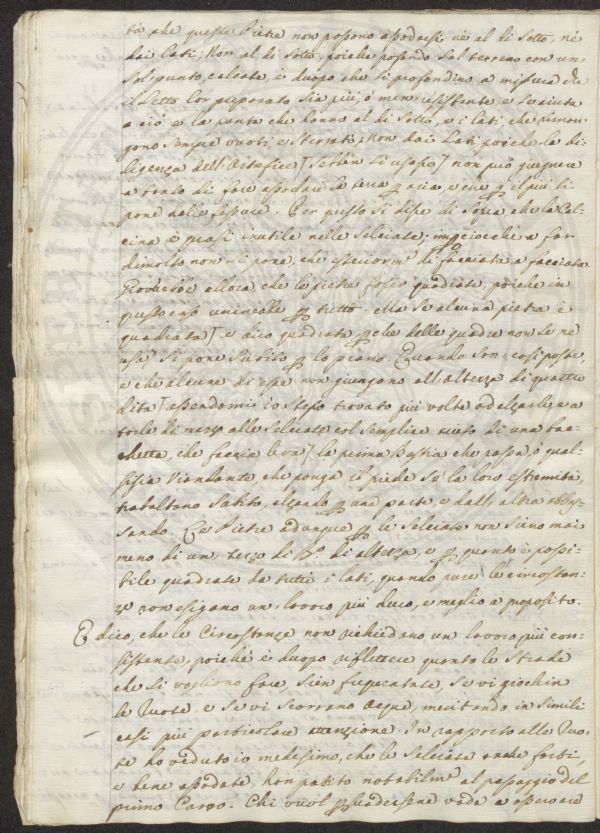 tà che queste Pietre non possono assodarsi nè al di sotto, nè
dai lati; Non al di sotto, poiche posando sul terreno con un
sol punto, calcate, è duopo che si profondino a misura che
il letto lor preparato sia più, ò men resistente e lo aiuta
a ciò e la punta che hanno al di sotto, e i lati, che riman-
gono sempre vuoti, e sterrati; Non dai lati poiche la di-
ligenza dell'Artefice [ sebben si usasse ] non può giugnere
a tanto di fare assodare la terra
pone delle fessure. Per questo si disse di sopra che la Cal-
cina è quasi inutile nelle Selciate; imperciocchè a far
dimolto non si pone, che esteriorm.e di facciata a facciata.
Gioverebbe allora, che le pietre fosser quadrate, poiche in
questo caso unirebbe per tutto. Ma se alcuna pietra è
quadrata [ e dico quadrata perche delle quadre non se ne
usa ] si pone subito per lo piano. Quando son così poste,
e che alcune di esse non giungono all'altezza di quattro
dita [ essendomi io stesso trovato più volte ad alzarle e a
torle di mezzo alle Selciate col semplice aiuto di una bac-
chetta, che faccia leva ] la prima Bestia che passa, ò qual-
sisia Viandante che ponga il piede su la loro estremità,
traballano subito, alzando per una parte, e dall'altra abbas-
sando. Le Pietre adunque per le Selciate non sieno mai
meno di un terzo di B.o di altezza, e per quanto è possi-
bile quadrate da tutti i lati, quando pure le circostan-
ze non esigano un lavoro più duro, e meglio a proposito.
E dico, che le Circostanze non richiedano un lavoro più con-
sistente, poichè è duopo riflettere quanto le Strade
che si vogliono fare, sien frequentate, se vi giochin
le Ruote, e se vi scorrano acque, meritando in simili
casi più particolare attenzione. In rapporto alle Ruo-
te ho veduto io medesimo, che le Selciate anche forti,
e bene assodate, han patito notabilm.e al passaggio del
primo Carro. Chi vuol persuadersene vada a osservare